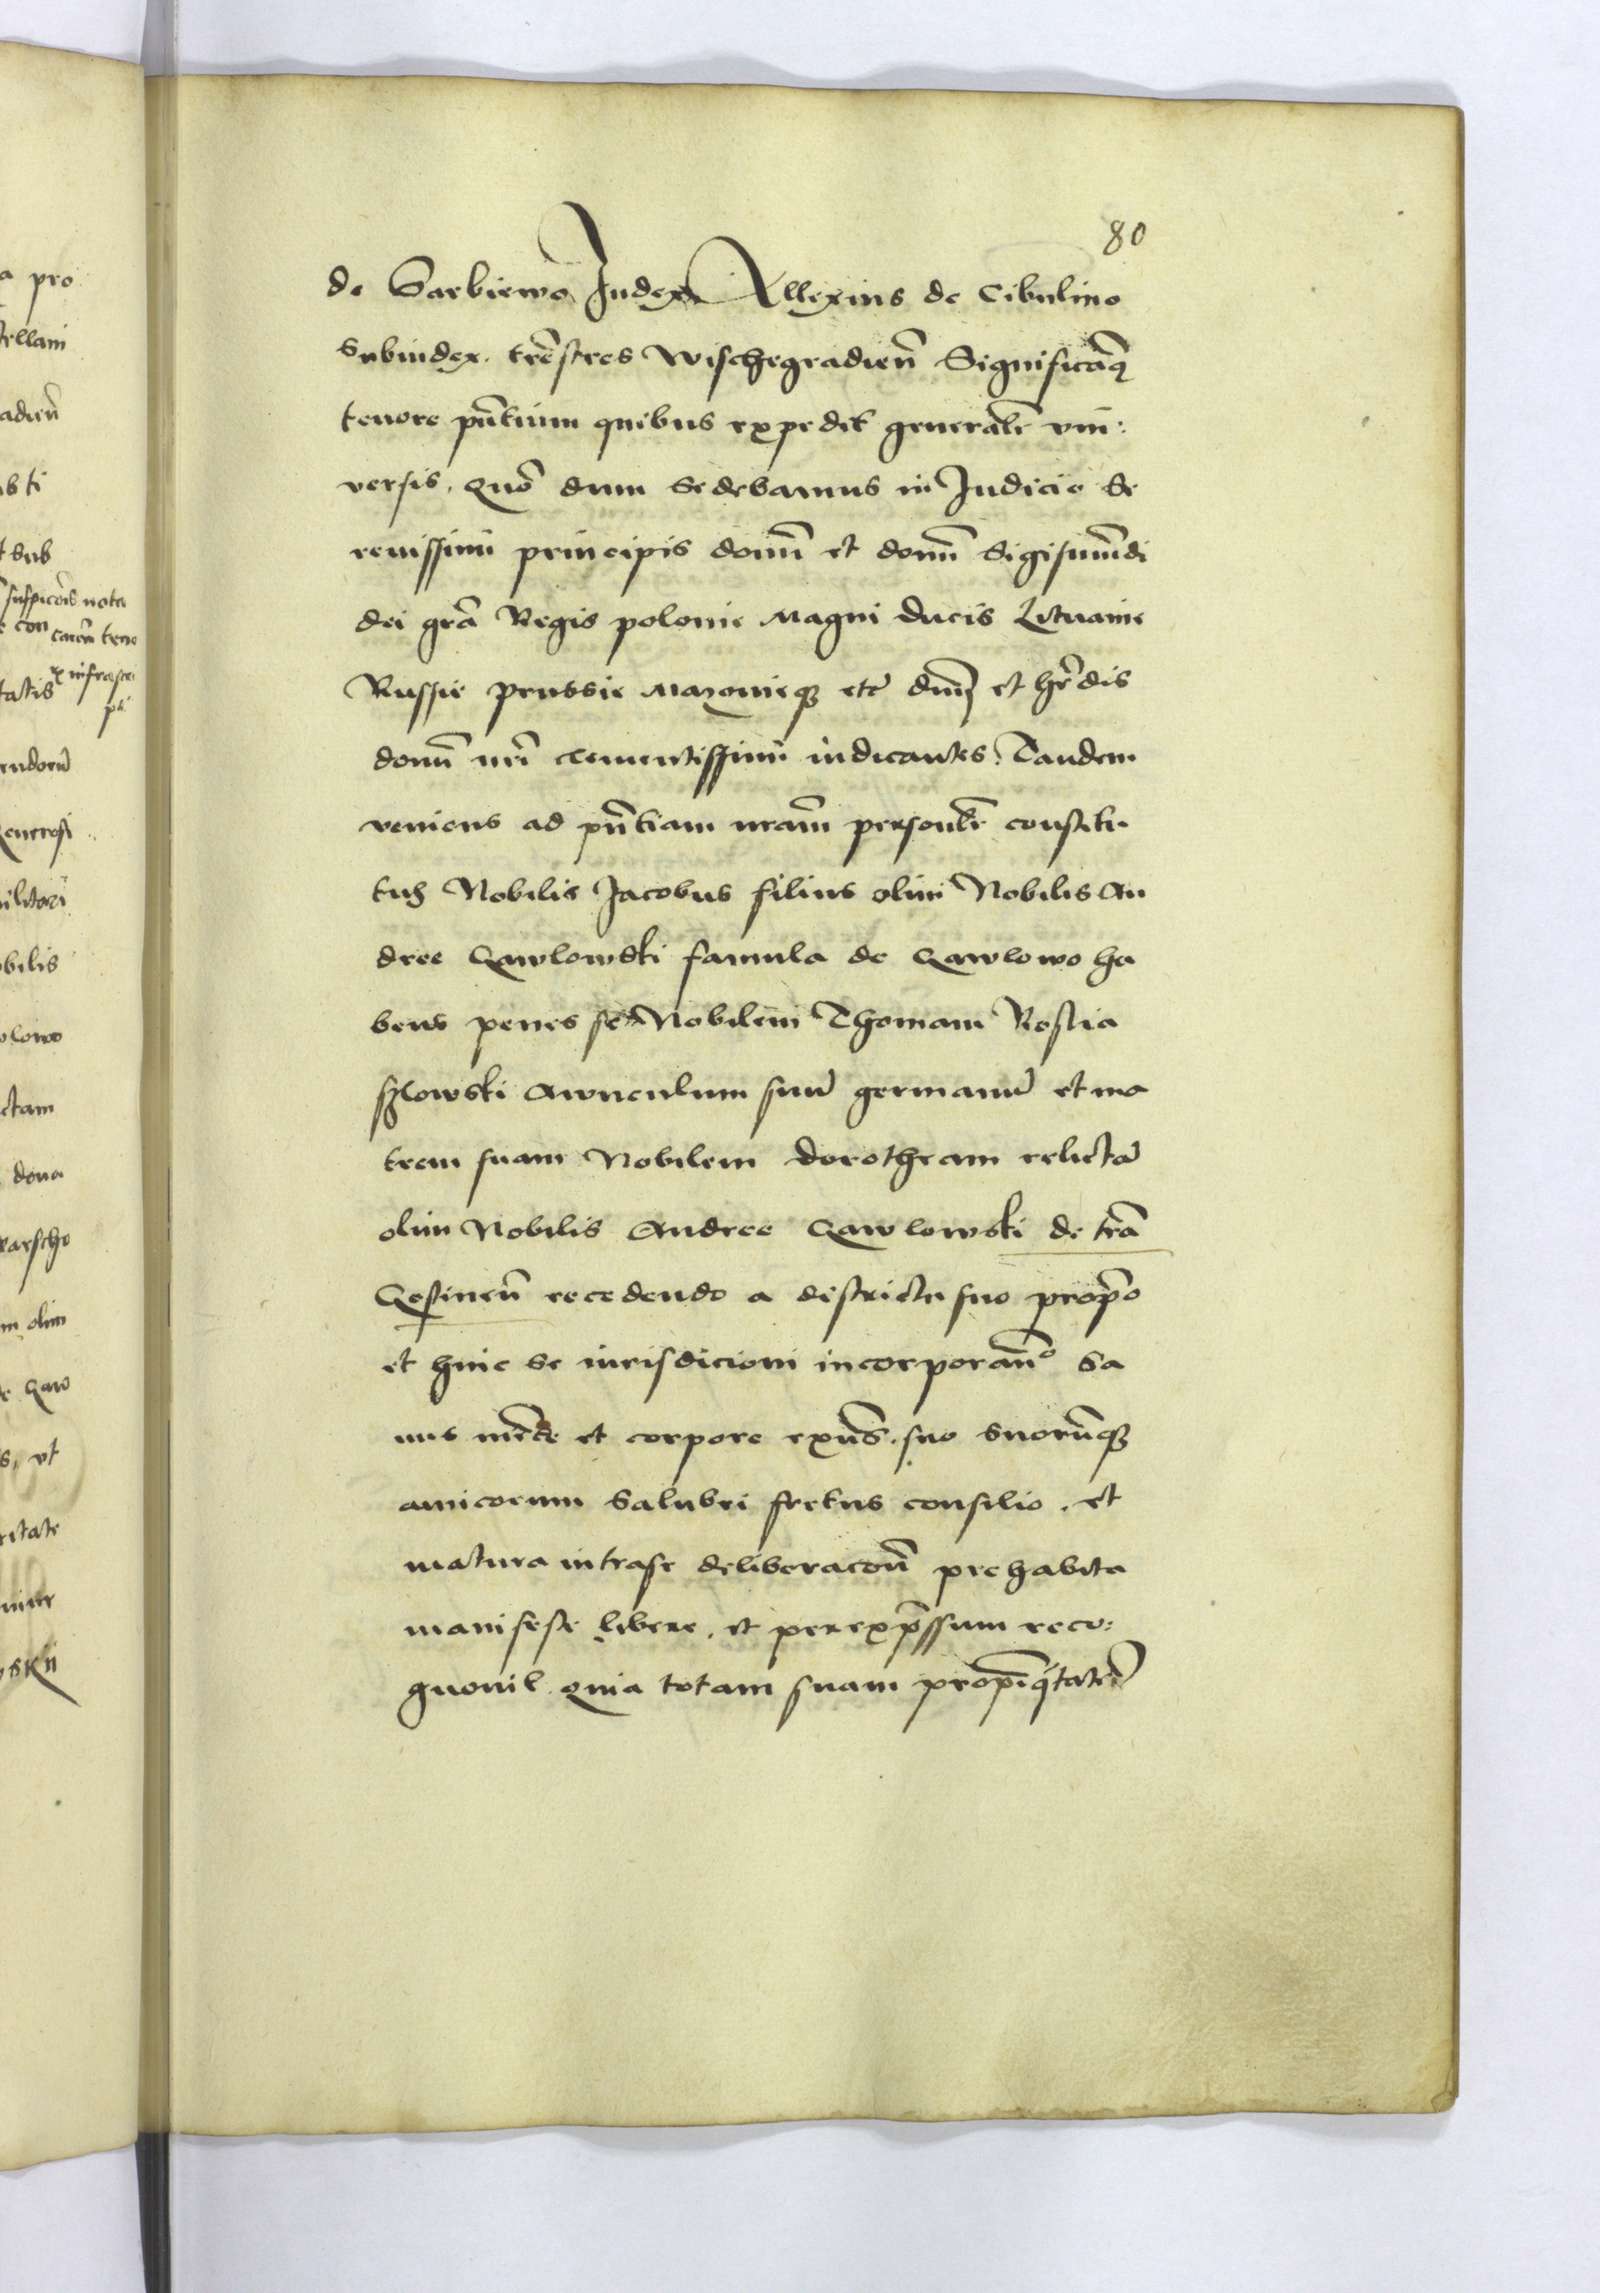 80
de Sarbiewo Judex Allexius de Cibulino
Subiudex. tr̃estres Wischegradieñ Significam̃q
tenore pñtium quibus expedit generalr̃ vni:
versis. Quõ dum sedebamus in Judicio Se
renissimi principis domĩ et domĩ Sigismũdi
dei grã Regis polonie Magni ducis Lituanie
Russie prussie Mazovieqз etc̃ dñij et hr̃edis
domĩ nr̃i clementissimi iudicantes. Tandem
veniens ad pñtiam nram̃ personalr̃ constitu
tus Nobilis Jacobus filius olim Nobilis An
dree Gawlowski famula de Gawlowo ha
bens penes se Nobilem Thomam Rostia
szlowski Awunculum suũ germanũ et ma
trem suam Nobilem dorotheam relictã
olim Nobilis Andree Gawlowski de tr̃a
Gostineñ recedendo a districtu suo prop̃o
et huic se iurisdicioni incorporañº Sa
nus mẽte et corpore exñs. suo suorũqз
amicorum salubri fretus consilio. et
matura intrase deliberacoñ prehabita
manifeste libere. et perexp̃ssum reco:
gnovit Quia totam suam propĩqitatẽ
a pro
stellani
adieñ
t sub
nota
tatis
endorũ
generosi
militari
obilis
ctam
dona
m olim
Gaw
s, vt
ritate